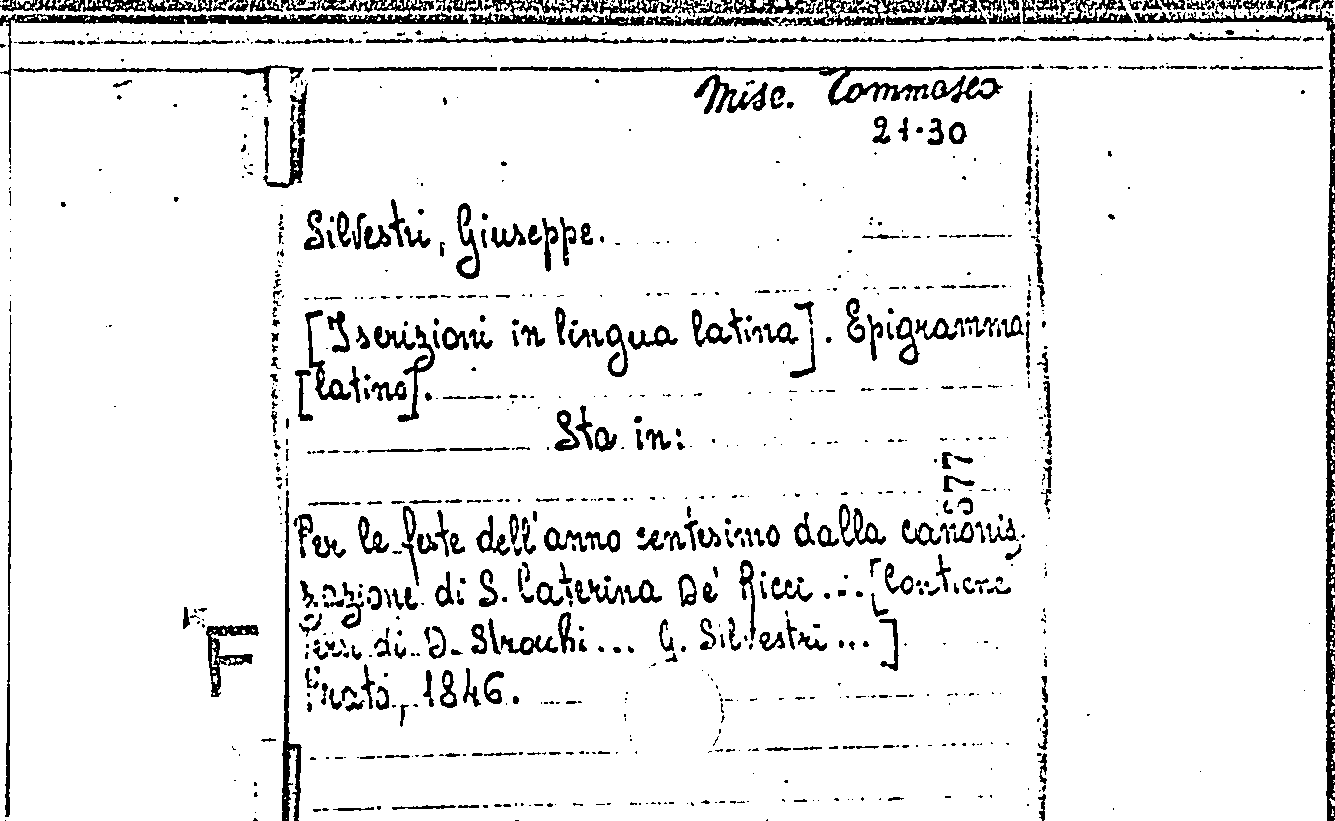 Misc. Tommaseo
21.30
Silvestri, Giuseppe.
[Iscrizioni in lingua latina]. Epigramma
[latino].
Sta in:
577
Per le feste dell'anno centesimo dalla canoniz
zazione di S. Caterina De' Ricci ... [Contiene
versi di D. Strocchi ... G. Silvestri ...]
Prato, 1846.
F